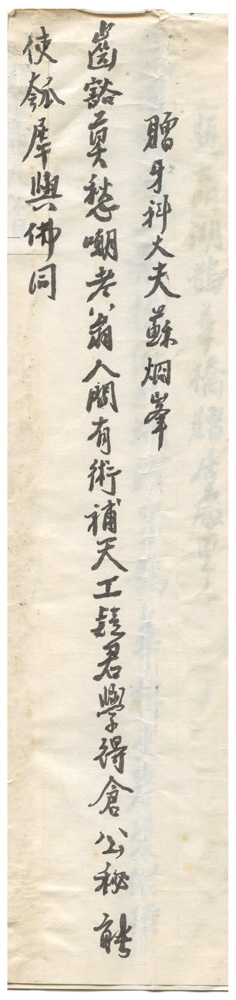 贈牙科大夫蘇炯峯
齒豁莫愁嘲老翁人間有術補天工疑君學得倉公秘能
使瓠犀與佛同